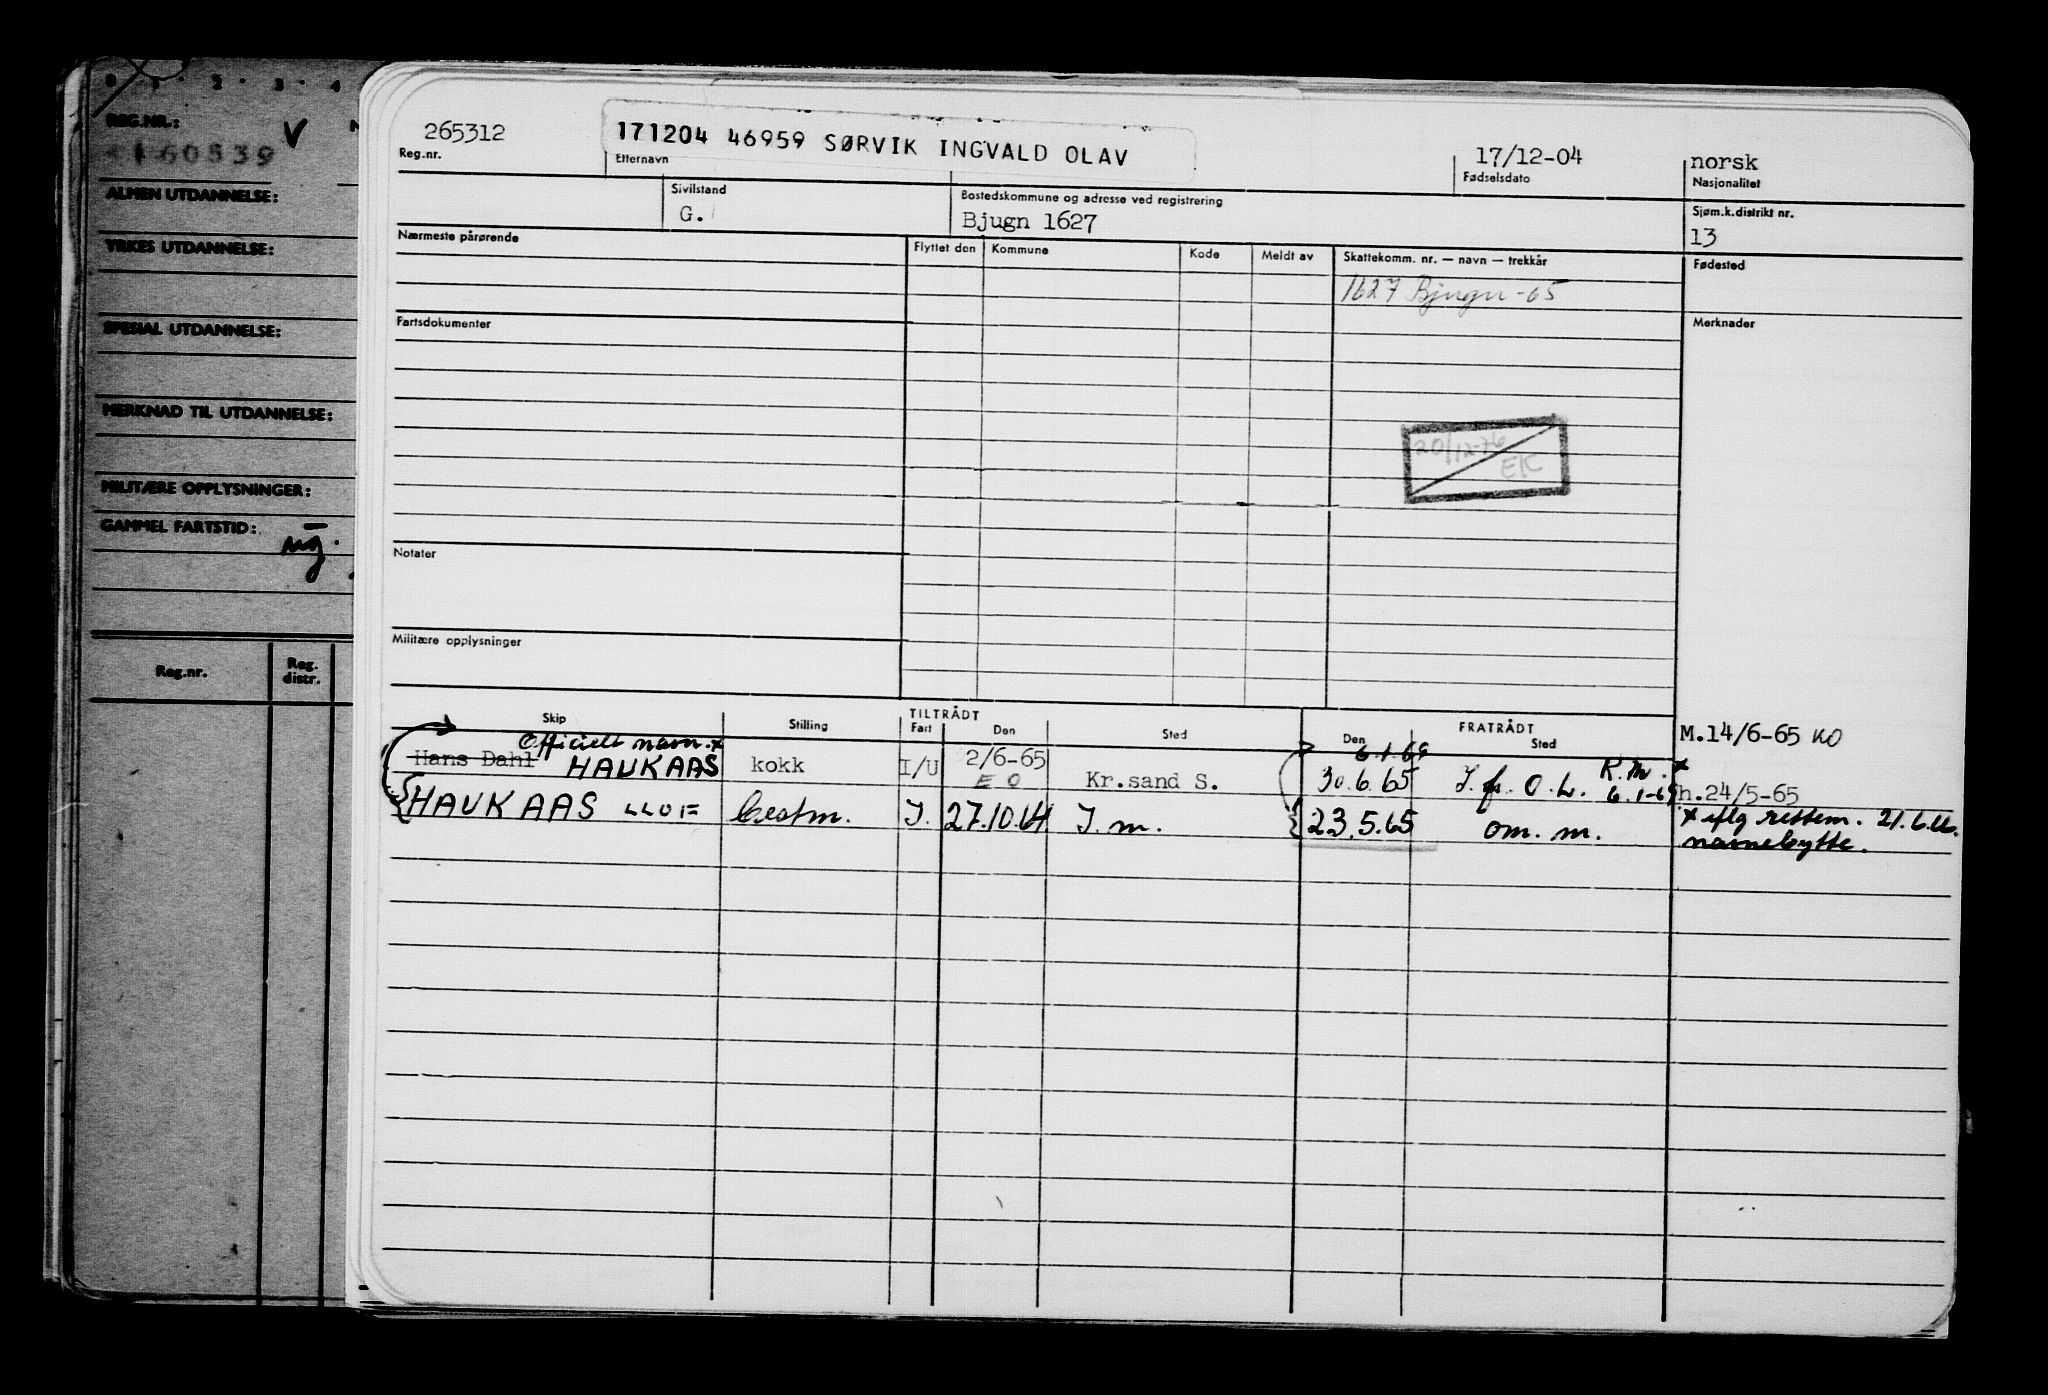 0 · 1 · 2 · 3 · 4
REG.NR.: V
160839
ALMEN UTDANNELSE:
YRKES UTDANNELSE:
SPESIAL UTDANNELSE:
MERKNAD TIL UTDANNELSE:
MILITÆRE OPPLYSNINGER:
GAMMEL FARTSTID:
Reg.nr. Reg. distr.
265312 171204 46959 SØRVIK INGVALD OLAV 17/12-04 norsk
Reg.nr. Etternavn Fødselsdato Nasjonalitet
Sivilstand Bostedskommune og adresse ved registrering Sjøm.k.distrikt nr.
G. Bjugn 1627 13
Nærmeste pårørende Flyttet den Kommune Kode Meldt av Skattekomm. nr. — navn — trekkår Fødested
1627 Bjugn -65
Fartsdokumenter Merknader
20/12-76
EK
Notater
Militære opplysninger
TILTRÅDT FRATRÅDT
Skip Stilling Fart Den Sted Den Sted
M.14/6-65 KO
Officielt navn. x 6.1.65
Hans Dahl HAUKAAS kokk I/U 2/6-65 Kr.sand S. 30.6.65 I. fr. O. L. K. m. x
E O 6.1-65 h.24/5-65
HAUKAAS LLOF Bestm. I. 27.10.64 I. m. 23.5.65 om. m. x iflg restem. 21.6.66.
navnebytte.